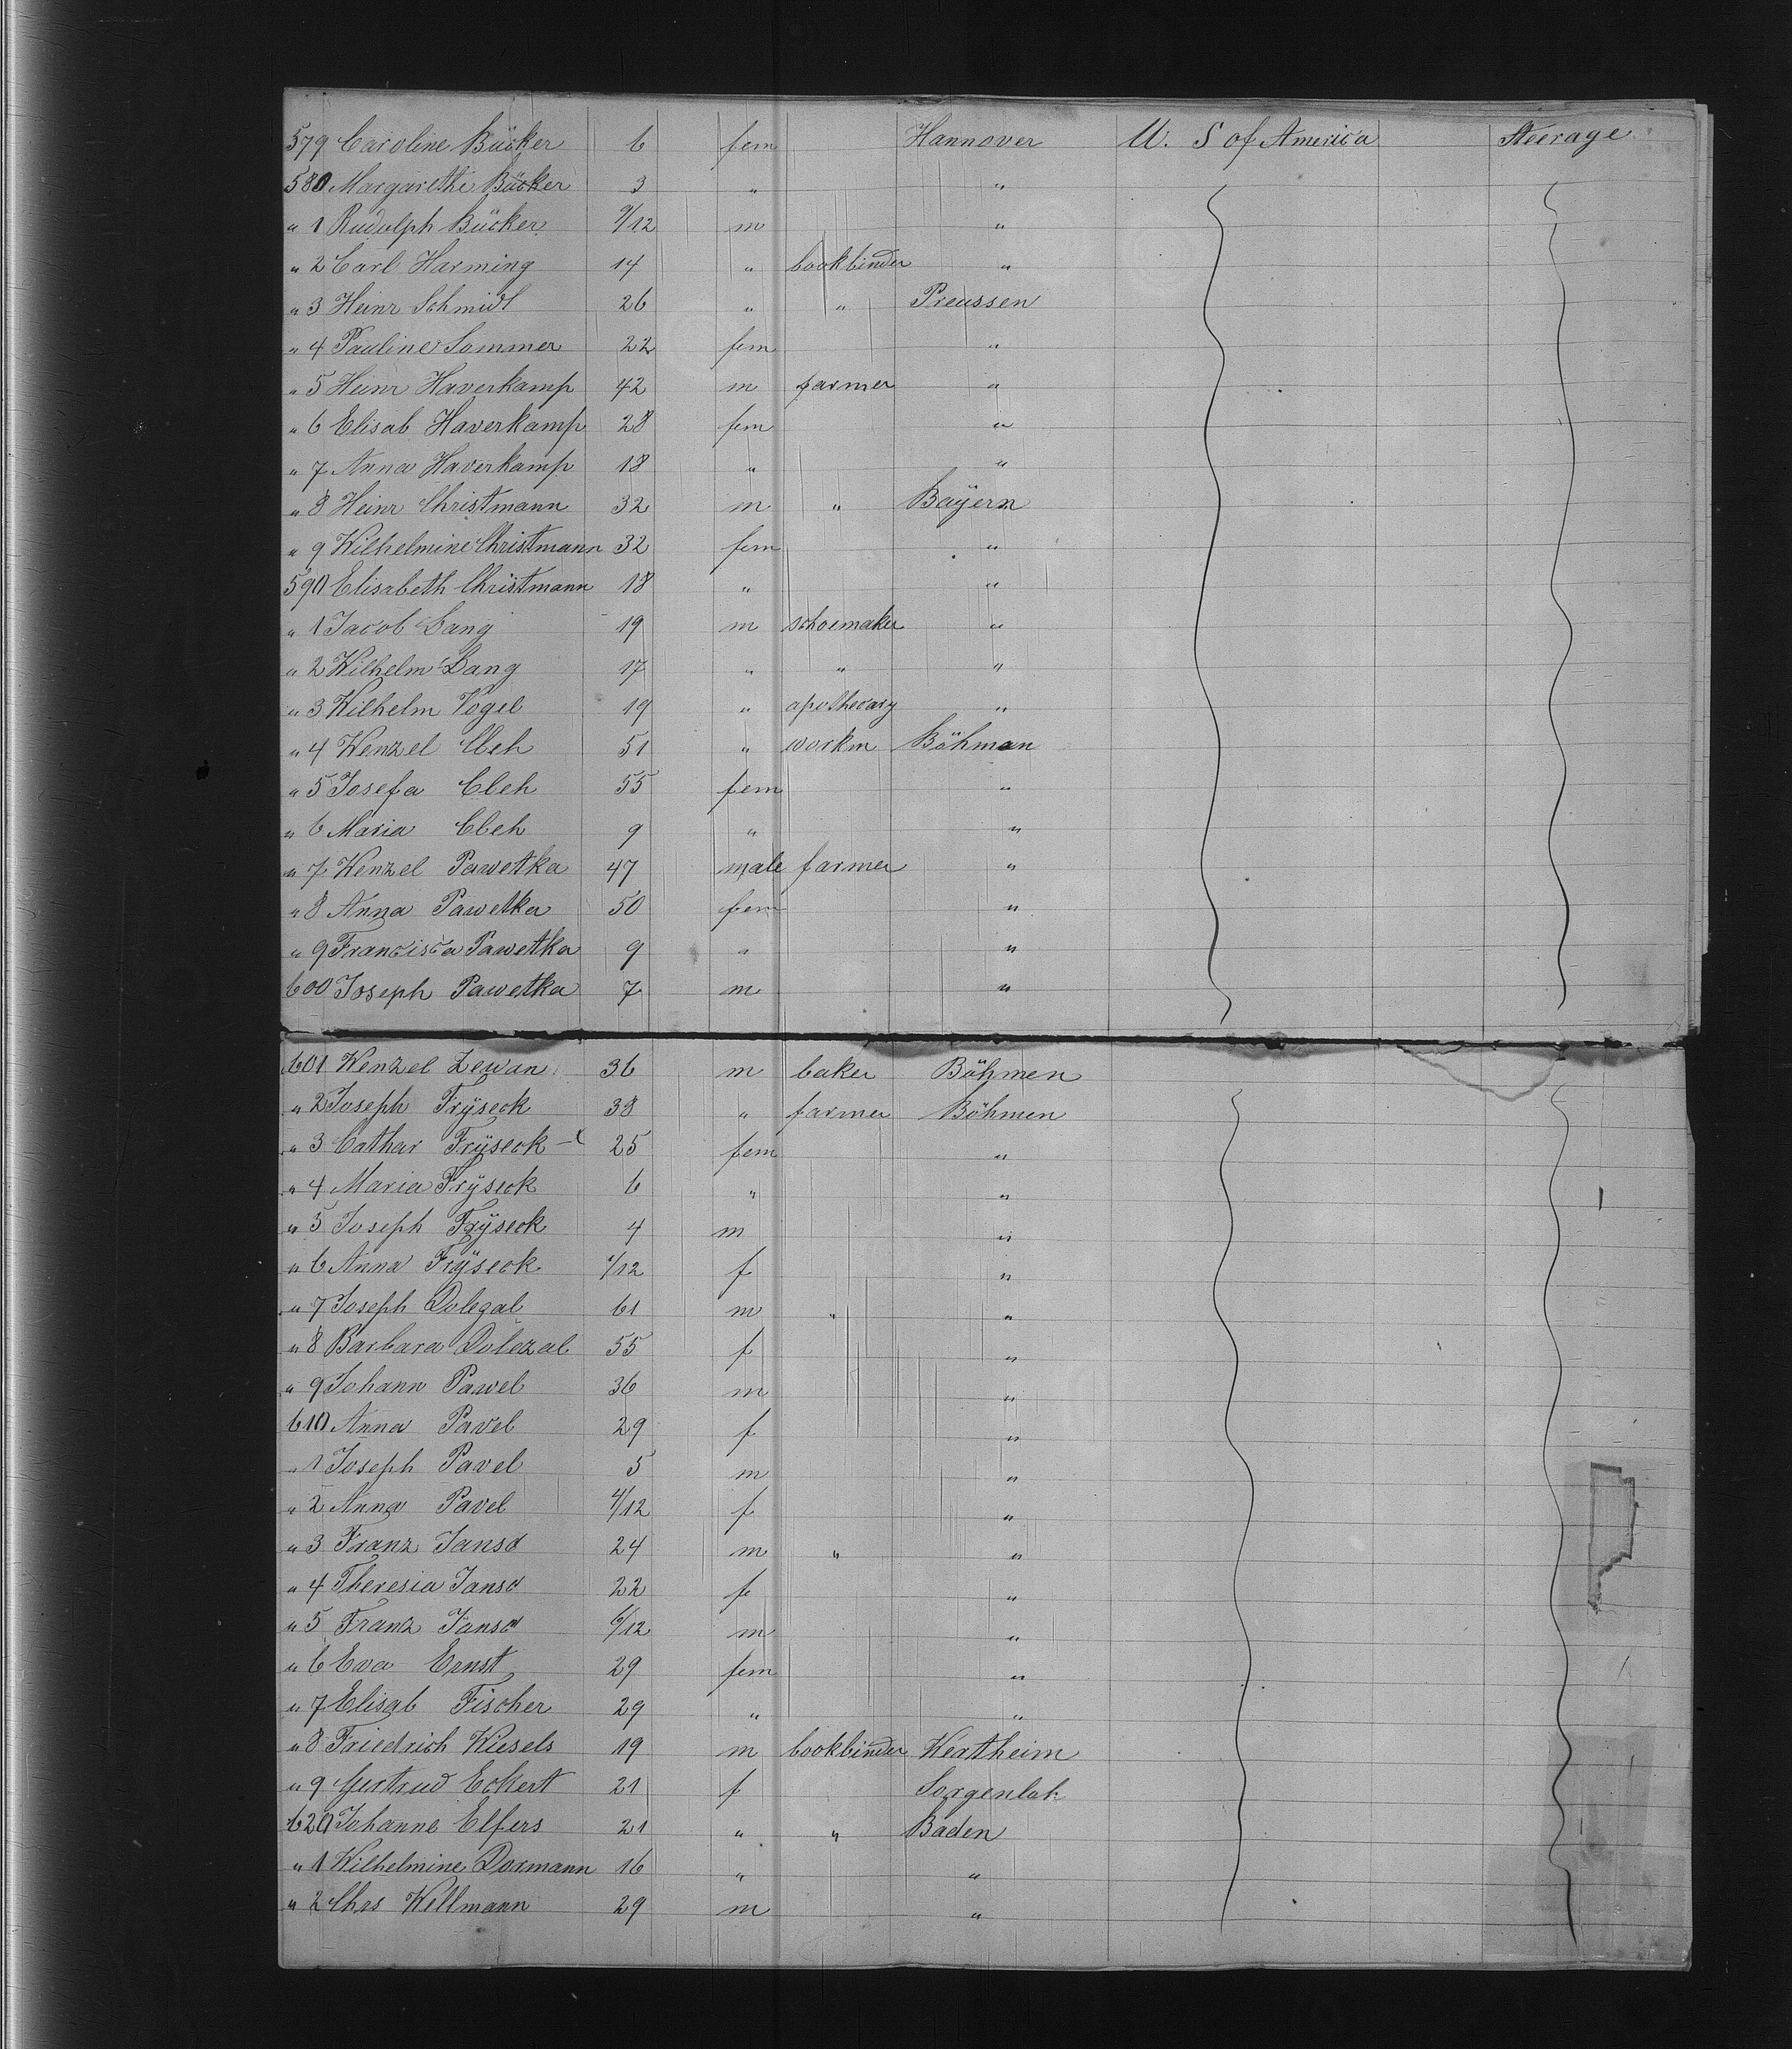 579 Caroline Bücker 6 fem Hannover U. S of America Steerage
580 Margarethe Bücker 3 " "
" 1 Rudolph Bücker 9/12 m "
" 2 Carl Harming 14 " bookbinder "
" 3 Heinr Schmidt 26 " " Preussen
" 4 Pauline Sommer 22 fem "
" 5 Heinr Haverkamp 42 m farmer "
" 6 Elisab Haverkamp 28 fem "
" 7 Anna Haverkamp 18 " "
" 8 Heinr Christmann 32 m " Bayern
" 9 Wilhelmine Christmann 32 fem "
590 Elisabeth Christmann 18 " "
" 1 Jacob Lang 19 m schoemaker "
" 2 Wilhelm Lang 17 " " "
" 3 Wilhelm Vogel 19 " apothecary "
" 4 Wenzel Cleh 51 " workm Böhman
" 5 Josefa Cleh 55 fem "
" 6 Maria Cleh 9 " "
" 7 Wenzel Pawetka 47 male farmer "
" 8 Anna Pawetka 50 fem "
" 9 Francisca Pawetka 9 " "
600 Joseph Pawetka 7 m "
601 Wenzel Zewan 36 m baker Böhmen
" 2 Joseph Frÿseck 38 " farmer Böhmen
" 3 Cathar Frÿseck 25 fem "
" 4 Maria Frÿseck 6 " "
" 5 Joseph Frÿseck 4 m "
" 6 Anna Frÿseck /12 f "
" 7 Joseph Dolezal 61 m " "
" 8 Barbara Dolezal 55 f "
" 9 Johann Pawel 36 m "
610 Anna Pavel 29 f "
" 1 Joseph Pavel 5 m "
" 2 Anna Pavel 4/12 f "
" 3 Franz Jansa 24 m " "
" 4 Theresia Jansa 22 f "
" 5 Franz Jansa 6/12 m "
" 6 Eva Ernst 29 fem "
" 7 Elisab Fischer 29 " "
" 8 Friedrich Wiesels 19 m bookbinder Wertheim
" 9 Gertrud Eckert 21 f Sorgenloh
620 Johanne Elfers 21 " " Baden
" 1 Wilhelmine Dormann 16 " "
" 2 Chrs Wellmann 29 m "